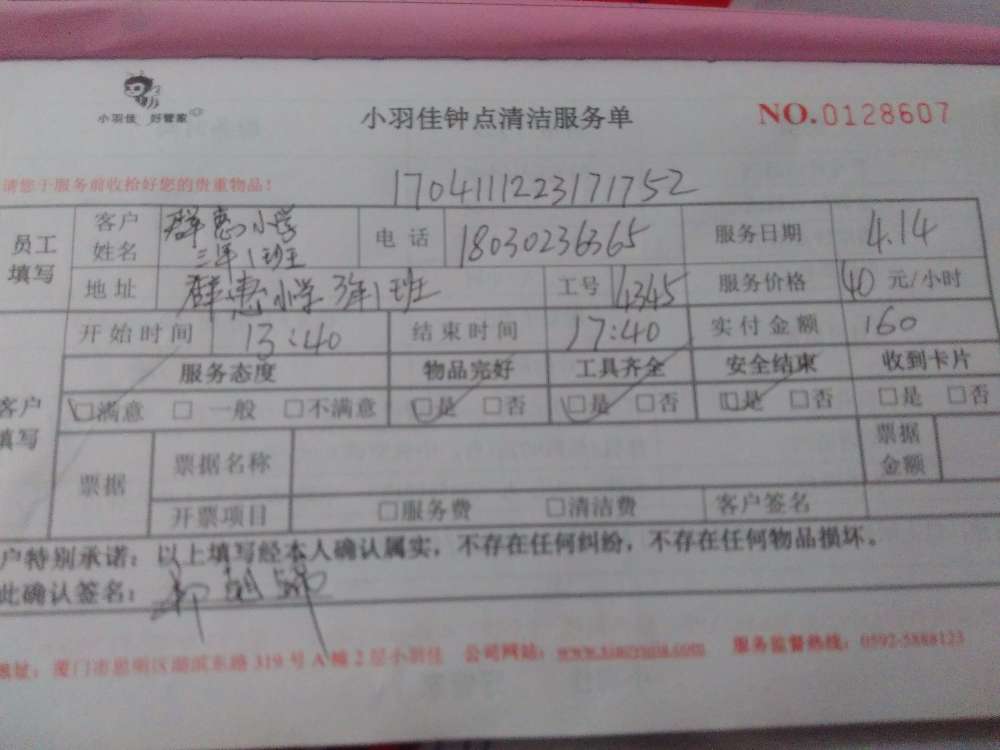 小羽佳 好管家
小羽佳钟点清洁服务单
NO.0128607
请您于服务前收拾好您的贵重物品!
1704111223171752
员工填写 客户姓名 群惠小学三年1班 电话 18030236365 服务日期 4.14
地址 群惠小学3年1班 工号 4345 服务价格 40 元/小时
开始时间 13:40 结束时间 17:40 实付金额 160
客户填写 服务态度 物品完好 工具齐全 安全结束 收到卡片
□满意 □一般 □不满意 □是 □否 □是 □否 □是 □否 □是 □否
票据 票据名称 票据金额
开票项目 □服务费 □清洁费 客户签名
户特别承诺：以上填写经本人确认属实，不存在任何纠纷，不存在任何物品损坏。
此确认签名：
地址：厦门市思明区湖滨东路319号A幢2层小羽佳 公司网站： 服务监督热线：0592-5888123